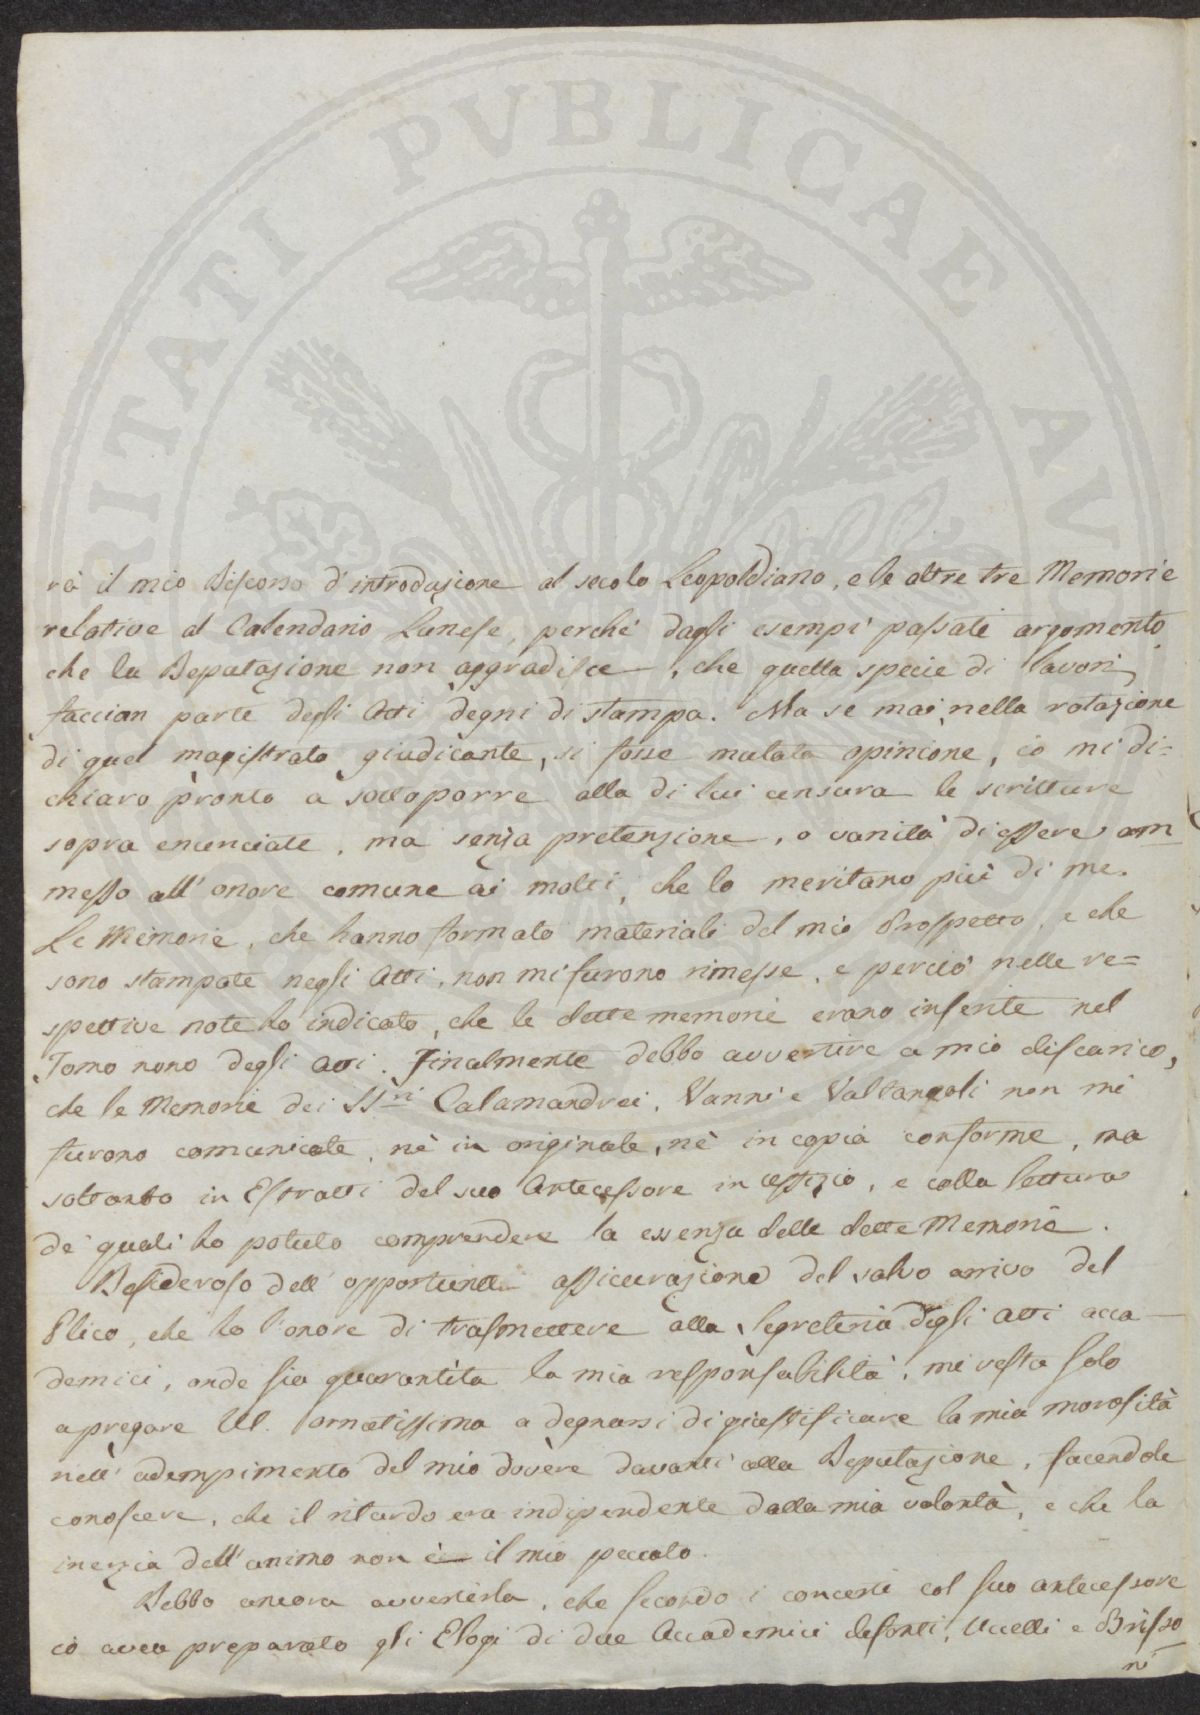 PVBLICAE
RITATI
AV
rà il mio Discorso d'introduzione al secolo Leopoldiano, e le altre tre Memorie
relative al Calendario Lunese, perchè dagli esempi passati argomento
che la Deputazione non aggradisce, che quella specie di lavori
faccian parte degli Atti degni di stampa. Ma se mai nella rotazione
di quel magistrato giudicante, si fosse mutata opinione, io mi di=
chiaro pronto a sottoporre alla di lui censura le scritture
sopra enunciate, ma senza pretenzione, o vanità di essere am
messo all'onore comune ai molti, che lo meritano più di me.
Le Memorie, che hanno formato materiali del mio Prospetto, e che
sono stampate negli Atti, non mi furono rimesse, e perciò nelle re=
spettive note ho indicato, che le dette memorie erano inserite nel
Tomo nono degli Atti. Finalmente debbo avvertire a mio discarico,
che le Memorie dei SSri Calamandrei, Vanni e Valtancoli non mi
furono comunicate, nè in originale, nè in copia conforme, ma
soltanto in Estratti del suo Antecessore in uffizio, e colla lettura
de' quali ho potuto comprendere la essenza delle dette Memorie.
Desideroso dell' opportuna assicurazione del salvo arrivo del
Plico, che ho l'onore di trasmettere alla Segreteria degli Atti acca-
demici, onde sia guarantita la mia responsabilità, mi resta solo
a pregare VS. ornatissima a degnarsi di giustificare la mia morosità
nell' adempimento del mio dovere davanti alla Deputazione, facendole
conoscere, che il ritardo era indipendente dalla mia volontà, e che la
inerzia dell'animo non è il mio peccato.
Debbo ancora avvertirla, che secondo i concerti col suo antecessore
io avea preparato gli Elogi di due Accademici defonti, Uccelli e Brisso
ni